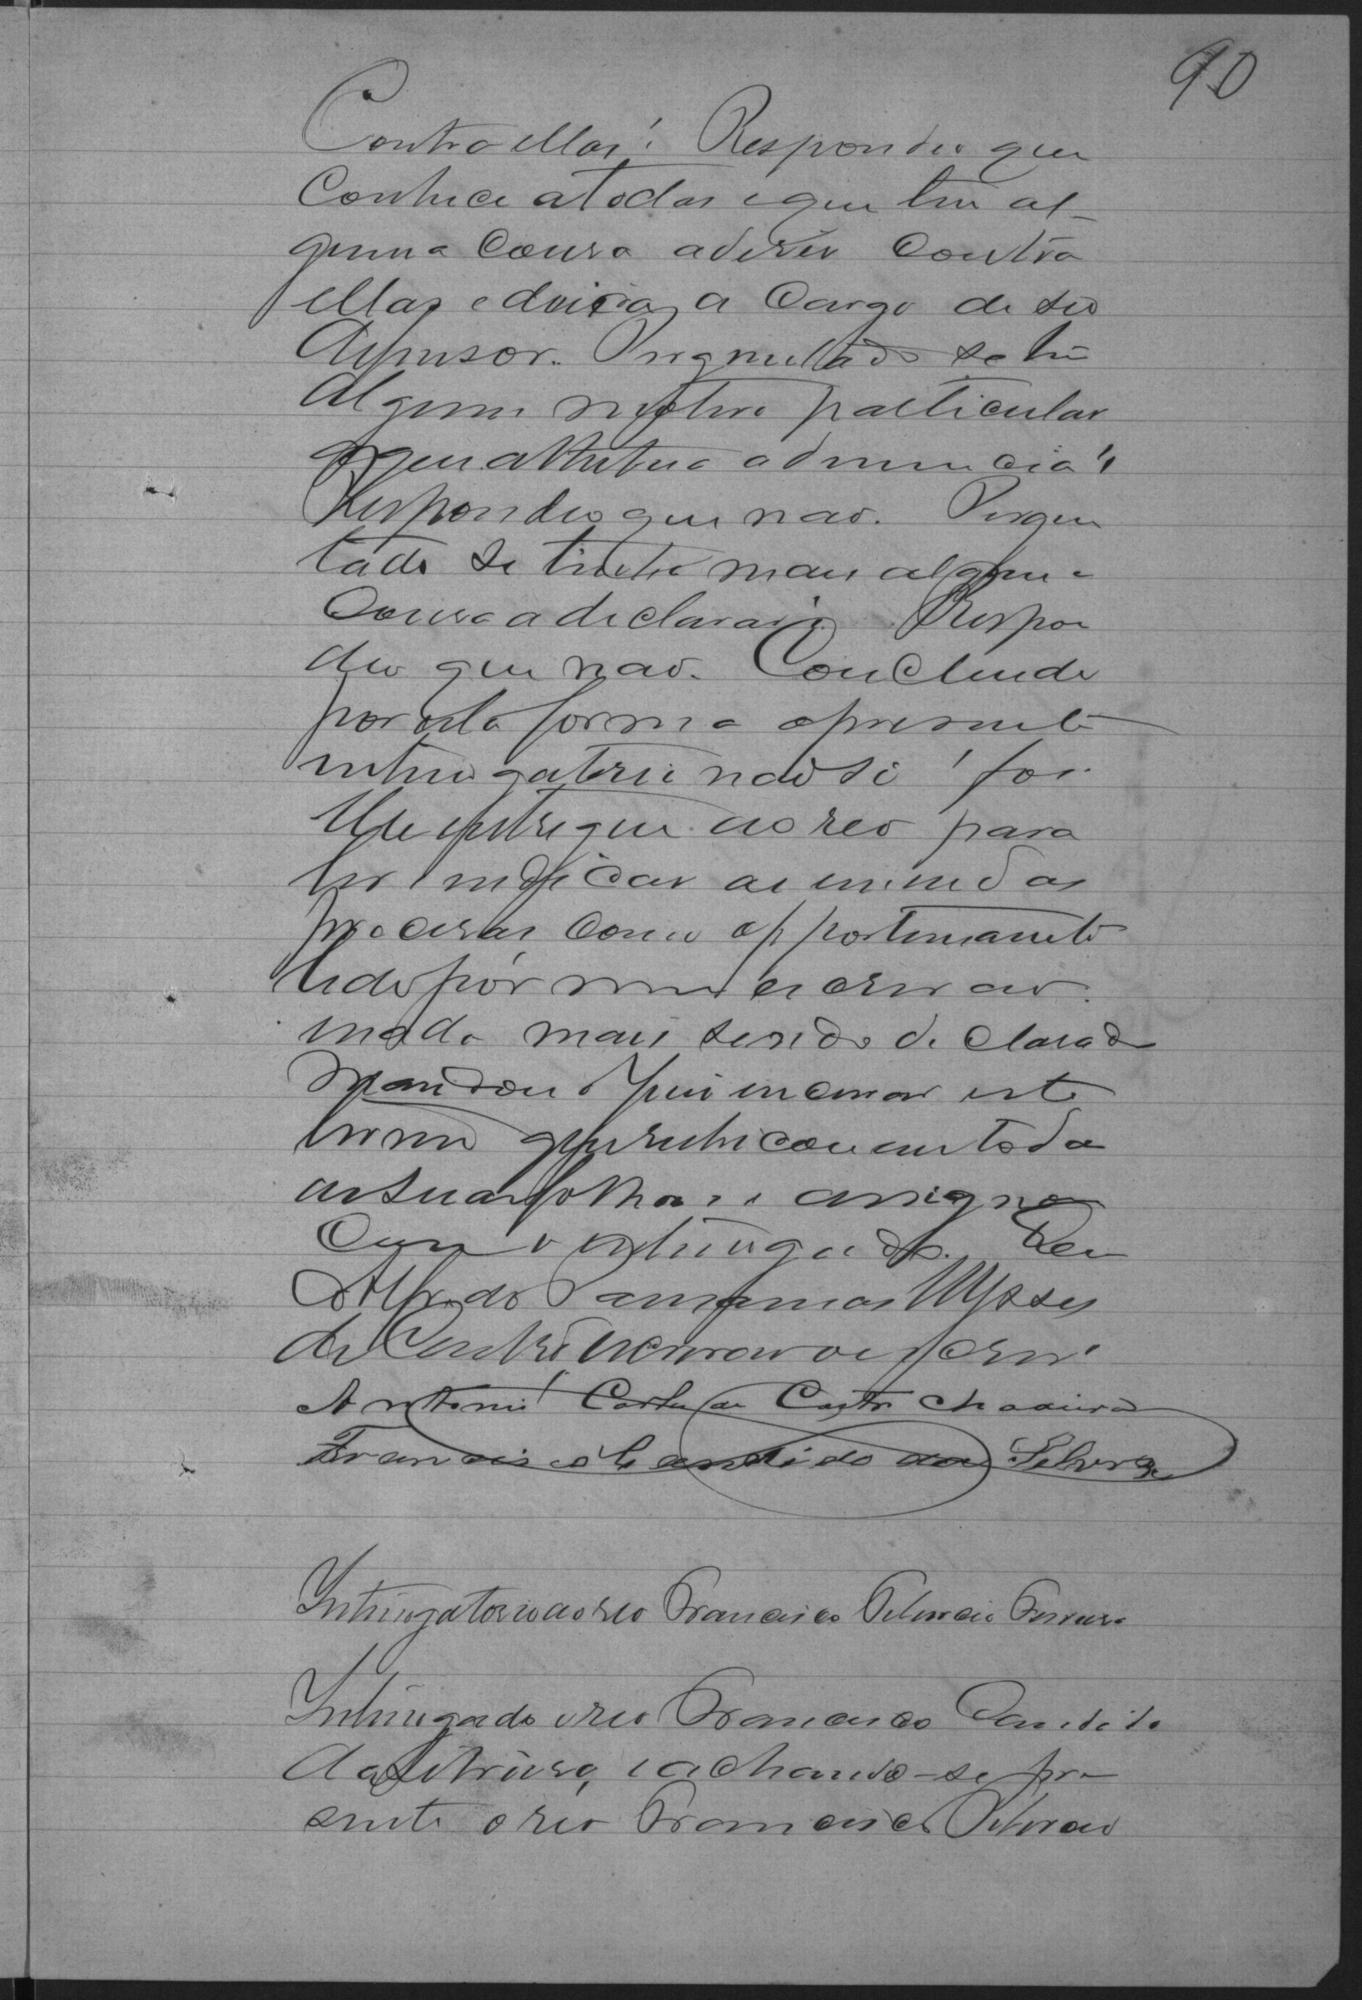 90
Contra ellas? Respondeo que
Conhece a todas e que tem al-
guma Cousa a diser Contra
ellas e deixa a Cargo de seo
defensor. Perguntado se tem
Algum motivo particular
a que attribua a denuncia?
Respondeo que não. Pergun
tado se tinha mais alguma
Cousa a declarar? Respon
deo que não. Concluido
por esta forma o presente
interrogatorio não só foi
lhe entregue ao reo para
ler indicar as emendas
precisas como opportunamente
lido por mim escrivão.
nada mais sendo declarado
Mandou o Juiz encerrar este
termo que rubricou em todas
as suas folhas e assigna
Com o interrogado. Eu
Alfredo Ulysses
de Castro escrivão o escrevi
Antonio Carlos de Castro Madeira
Francisco Candido da Silveira
Interrogatorio ao reo Francisco Silverio Ferreira
Interrogado o reo Francisco Candido
da Silveira, e achando-se pre-
sente o reo Francisco Silverio